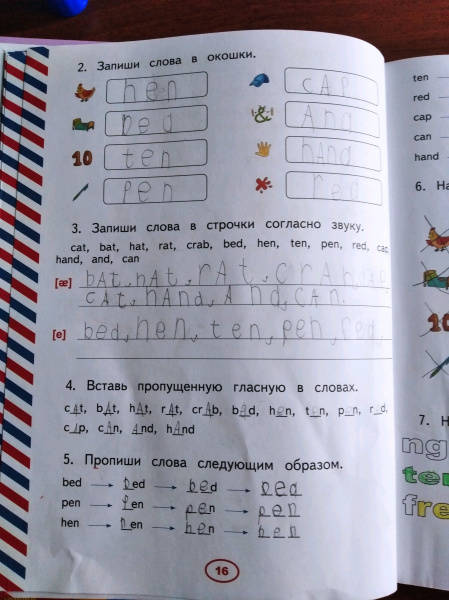 2. Запиши слова в окошки.
hen cAp
bed And
10 ten hAnd
pen red
3. Запиши слова в строчки согласно звуку.
cat, bat, hat, rat, crab, bed, hen, ten, pen, red, cap,
hand, and, can
[æ] bAt, hAt, rAt, crAb,
cAt, hAnd, And, cAn.
[e] bed, hen, ten, pen, red,
4. Вставь пропущенную гласную в словах.
cAt, bAt, hAt, rAt, crAb, bed, hen, ten, pen, red,
cAp, cAn, And, hAnd
5. Пропиши слова следующим образом.
bed → bed → bed → bed
pen → pen → pen → pen
hen → hen → hen → hen
16
ten
red
cap
can
hand
6. На
10
7. Н
ng
ten
fre